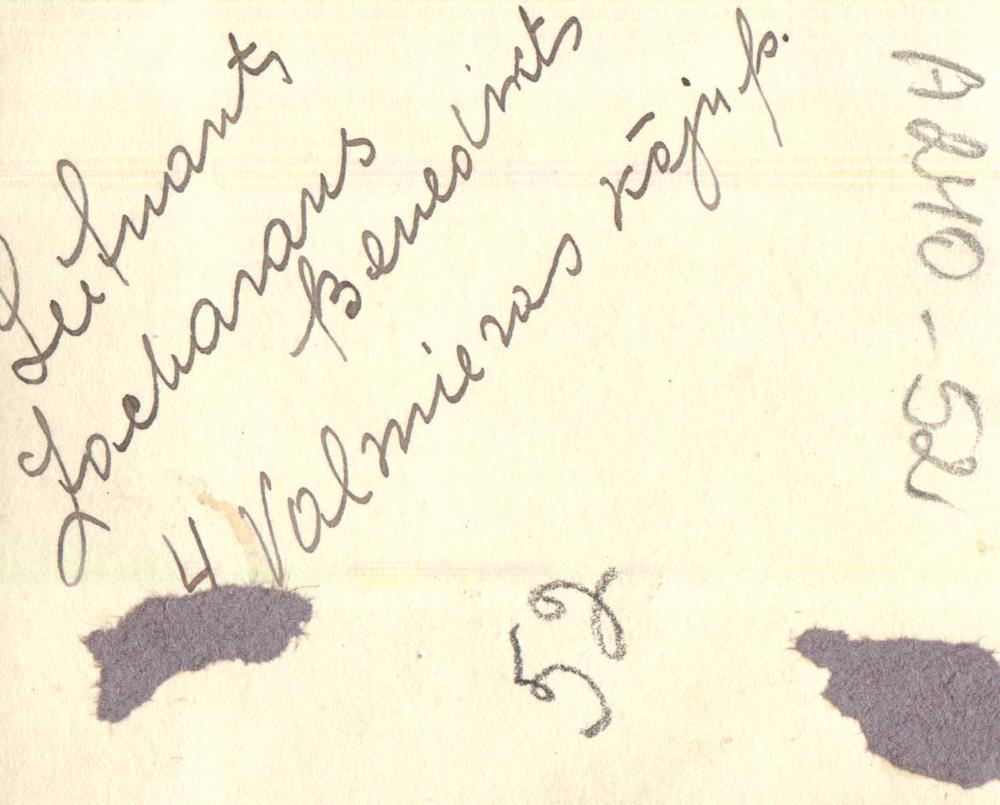 Leitnants
Zacharans
Benedikts
4 Valmieras kāju p.
A 240-52
52